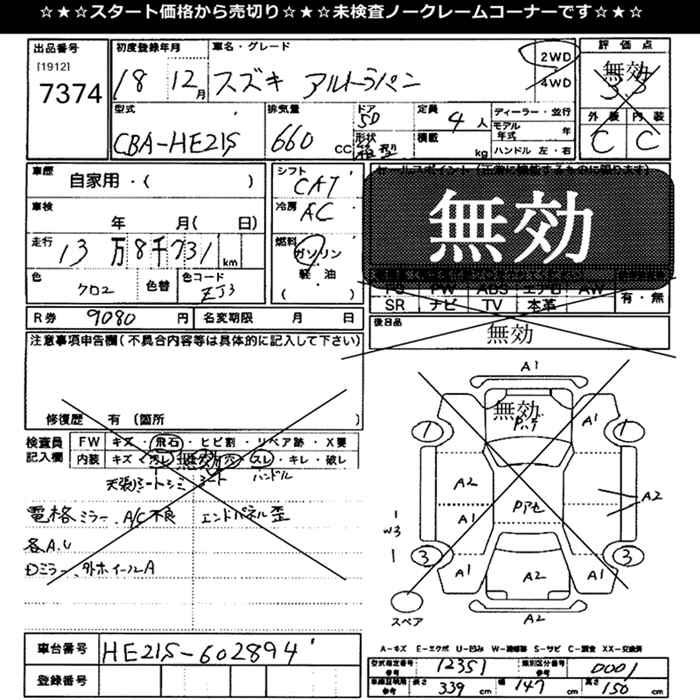 ☆★☆★スタート価格から売切り☆★☆★未検査ノークレームコーナーです☆★☆
出品番号 初度登録年月 車名・グレード 評価点
[1912]
7374 18 12月 スズキ アルトラパン 2WD 4WD 無効 3.5
型式 排気量 ドア 定員 ディーラー・並行 外装 内装
CBA-HE21S 660 CC 5D 4人 モデル年式 年 C C
形状 箱型 積載 kg ハンドル 左・右
車歴 自家用・( ) シフト CAT セールスポイント(正常に機能するものに限ります)
車検 年 月( 日) 冷房 AC 無効
走行 13万8千731km 燃料 ガソリン
軽油
( )
色 クロ2 色替 色コード ZJ3
PS PW ABS エアロ AW 有・無
SR ナビ TV 本革
R券 9080円 名変期限 月 日 後日品 無効
注意事項申告欄(不具合内容等は具体的に記入して下さい)
修復歴 有(箇所 )
検査員記入欄 FW キズ・飛石・ヒビ割・リペア跡・X要
内装 キズ・汚レ・無効・穴・スレ・キレ・破レ
天張シートシミ シート ハンドル
電格ミラー、A/C不良 エンドパネル歪
各A.U
Dミラー、外ホイールA
A1
無効
A1
1 1
A2 A1 Pアセ A2
1
W3
1 3 3
A1 A2 A1
スペア A2
A-キズ E-エクボ U-凹み W-補修跡 S-サビ C-腐食 XX-交換済
車台番号 HE21S-602894
登録番号
型式指定番号 参考 12351 類別区分番号 参考 0001
車検証明用 参考 長さ 339cm 幅 147cm 高さ 150cm